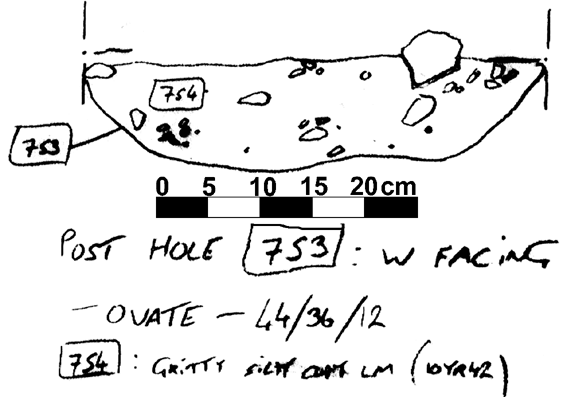 754
753
0 5 10 15 20 cm
POST HOLE 753 : W FACING
- OVATE - 44/36/12
754 : GRITTY SILTY LM (10YR42)